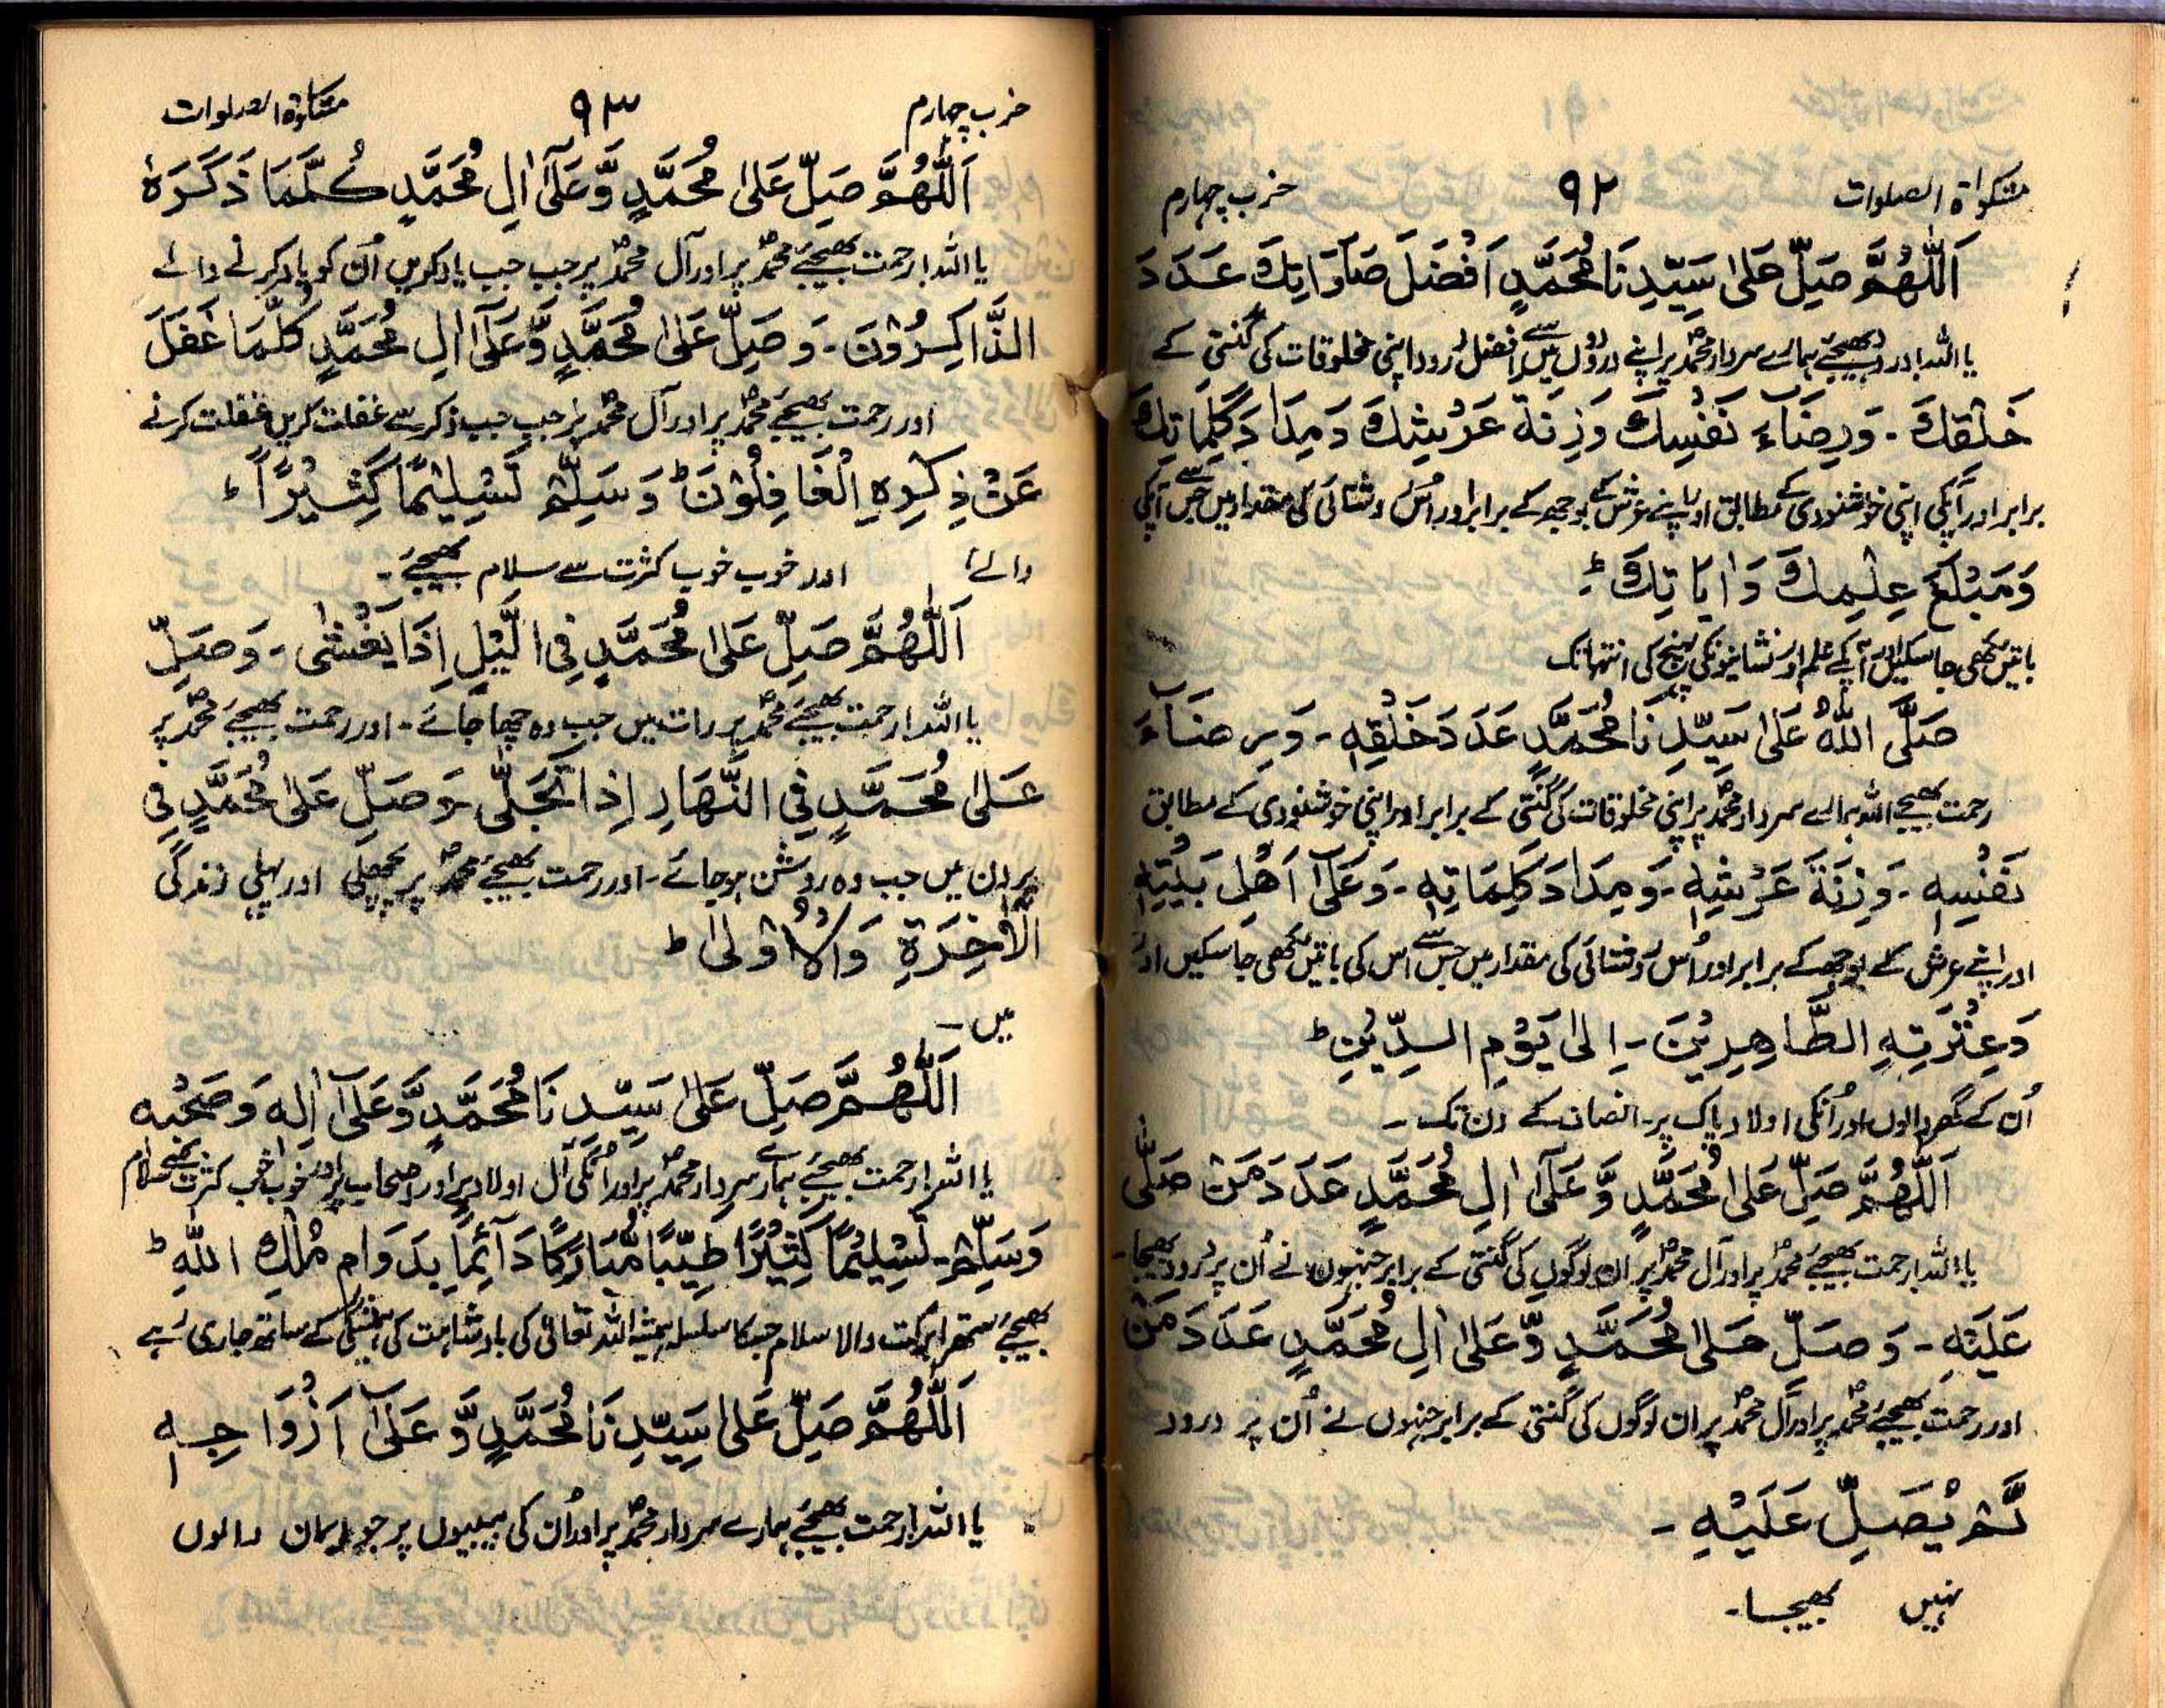 مشکوٰۃ الصلوات ۹۲ حزب چہارم
اَللّٰهُمَّ صَلِّ عَلٰى سَيِّدِنَا مُحَمَّدٍ اَفْضَلَ صَلَوَاتِكَ عَدَدَ
یا اللہ! درود بھیجئے ہمارے سردار محمدؐ پر اپنے درودوں میں سے افضل درود اپنی مخلوقات کی گنتی کے
خَلْقِكَ - وَرِضَآءَ نَفْسِكَ وَزِنَةَ عَرْشِكَ وَمِدَادَ كَلِمَاتِكَ
برابر اور آپکی اپنی خوشنودی کے مطابق اور اپنے عرش کے بوجھ کے برابر اور اُس روشنائی کی مقدار میں جس سے آپکی
وَمَبْلَغَ عِلْمِكَ وَاٰيَاتِكَ ؕ
باتیں لکھی جا سکیں اور آپکے علم اور نشانیونکی پہنچ کی انتہا تک
صَلَّى اللّٰهُ عَلٰى سَيِّدِنَا مُحَمَّدٍ عَدَدَ خَلْقِهٖ - وَرِضَآءَ
رحمت بھیجے اللہ ہمارے سردار محمدؐ پر اپنی مخلوقات کی گنتی کے برابر اور اپنی خوشنودی کے مطابق
نَفْسِهٖ - وَزِنَةَ عَرْشِهٖ - وَمِدَادَ كَلِمَاتِهٖ - وَعَلٰٓى اَهْلِ بَيْتِهٖ
اور اپنے عرش کے بوجھ کے برابر اور اُس روشنائی کی مقدار میں جس سے اس کی باتیں لکھی جا سکیں اور
وَعِتْرَتِهِ الطَّاهِرِيْنَ - اِلٰى يَوْمِ الدِّيْنِ ؕ
اُن کے گھر والوں اور اُنکی اولاد پاک پر - انصاف کے دن تک -
اَللّٰهُمَّ صَلِّ عَلٰى مُحَمَّدٍ وَّعَلٰٓى اٰلِ مُحَمَّدٍ عَدَدَ مَنْ صَلّٰى
یا اللہ! رحمت بھیجئے محمدؐ پر اور آل محمدؐ پر ان لوگوں کی گنتی کے برابر جنہوں نے اُن پر درود بھیجا -
عَلَيْهِ - وَصَلِّ عَلٰى مُحَمَّدٍ وَّعَلٰٓى اٰلِ مُحَمَّدٍ عَدَدَ مَنْ
اور رحمت بھیجئے محمدؐ پر اور آل محمدؐ پر ان لوگوں کی گنتی کے برابر جنہوں نے اُن پر درود
لَّمْ يُصَلِّ عَلَيْهِ -
نہیں بھیجا -
حزب چہارم ۹۳ مشکوٰۃ الصلوات
اَللّٰهُمَّ صَلِّ عَلٰى مُحَمَّدٍ وَّعَلٰٓى اٰلِ مُحَمَّدٍ كُلَّمَا ذَكَرَهُ
یا اللہ! رحمت بھیجئے محمدؐ پر اور آل محمدؐ پر جب جب یاد کریں اُن کو یاد کرنے والے
الذَّاكِرُوْنَ - وَصَلِّ عَلٰى مُحَمَّدٍ وَّعَلٰٓى اٰلِ مُحَمَّدٍ كُلَّمَا غَفَلَ
اور رحمت بھیجئے محمدؐ پر اور آل محمدؐ پر جب جب ذکر سے غفلت کریں غفلت کرنے
عَنْ ذِكْرِهِ الْغَافِلُوْنَ ؕ وَسَلِّمْ تَسْلِيْمًا كَثِيْرًا ؕ
والے، اور خوب خوب کثرت سے سلام بھیجئے -
اَللّٰهُمَّ صَلِّ عَلٰى مُحَمَّدٍ فِى الَّيْلِ اِذَا يَغْشٰى - وَصَلِّ
یا اللہ! رحمت بھیجئے محمدؐ پر رات میں جب وہ چھا جائے - اور رحمت بھیجئے محمدؐ پر
عَلٰى مُحَمَّدٍ فِى النَّهَارِ اِذَا تَجَلّٰى - وَصَلِّ عَلٰى مُحَمَّدٍ فِى
پر دن میں جب وہ روشن ہوجائے - اور رحمت بھیجئے محمدؐ پر پچھلی اور پہلی زندگی
الْاٰخِرَةِ وَالْاُوْلٰى ؕ
میں -
اَللّٰهُمَّ صَلِّ عَلٰى سَيِّدِنَا مُحَمَّدٍ وَّعَلٰٓى اٰلِهٖ وَصَحْبِهٖ
یا اللہ! رحمت بھیجئے ہمارے سردار محمدؐ پر اور اُنکی آل اولاد پر اور اصحاب پر اور خوب خوب کثرت سے سلام
وَسَلِّمْ - تَسْلِيْمًا كَثِيْرًا طَيِّبًا مُّبَارَكًا دَآئِمًا بِدَوَامِ مُلْكِ اللّٰهِ ؕ
بھیجئے ستھرا برکت والا سلام جسکا سلسلہ ہمیشہ اللہ تعالیٰ کی بادشاہت کی ہمیشگی کے ساتھ جاری رہے
اَللّٰهُمَّ صَلِّ عَلٰى سَيِّدِنَا مُحَمَّدٍ وَّعَلٰٓى اَزْوَاجِهٖ
یا اللہ! رحمت بھیجئے ہمارے سردار محمدؐ پر اور اُن کی بیبیوں پر جو ایمان والوں